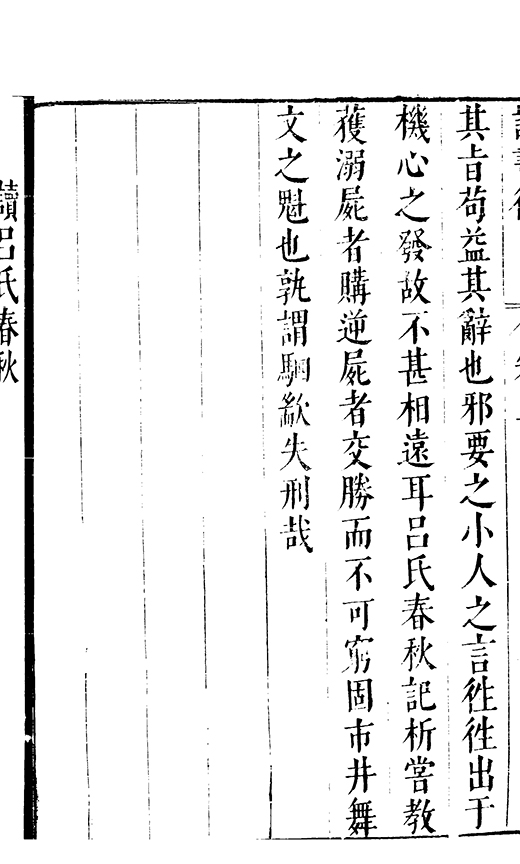 其旨茍益其辭也邪要之小人之言徃徃出于
機心之發故不甚相遠耳呂氏春秋記析嘗教
獲溺屍者購逆屍者交勝而不可窮固市井舞
文之魁也孰謂駟歂失刑哉
讀呂氏春秋